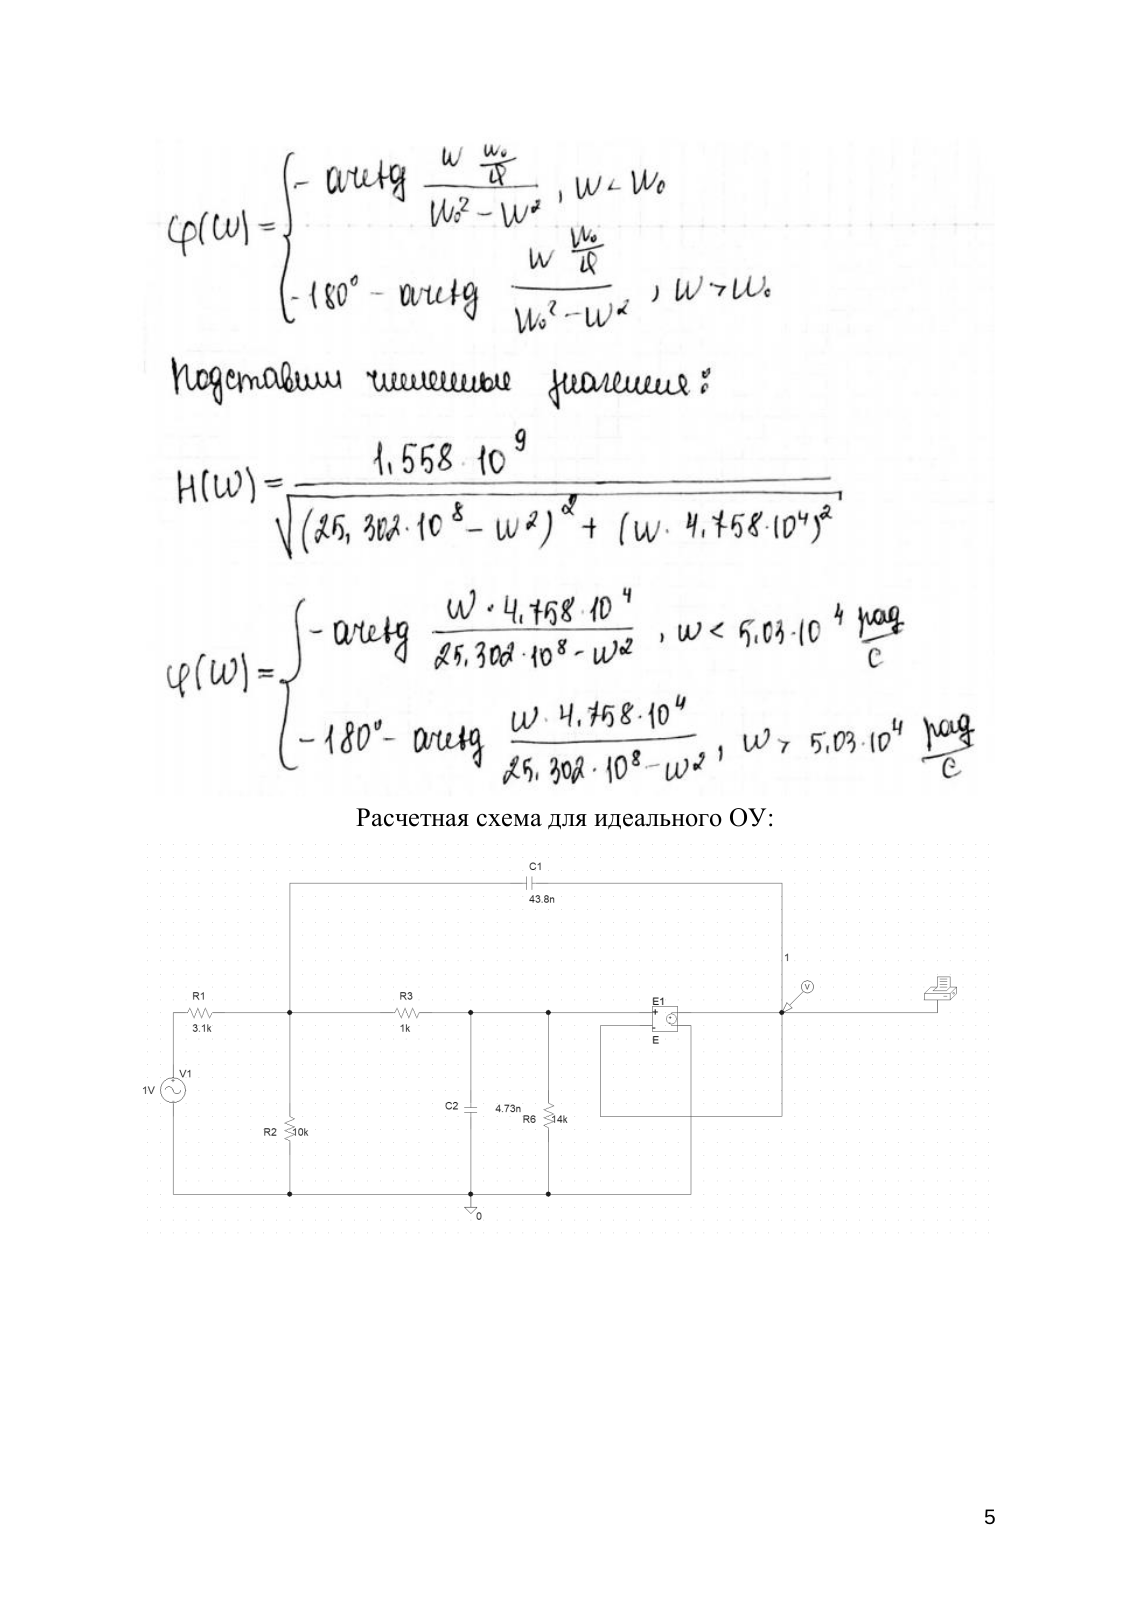 φ(ω) = { - arctg (ω ω₀/Q)/(ω₀² - ω²), ω < ω₀
-180° - arctg (ω ω₀/Q)/(ω₀² - ω²), ω > ω₀
Подставим численные значения:
H(ω) = 1,558 · 10⁹ / √((25,302·10⁸ - ω²)² + (ω · 4,758·10⁴)²)
φ(ω) = { - arctg (ω · 4,758·10⁴)/(25,302·10⁸ - ω²), ω < 5,03·10⁴ рад/с
-180° - arctg (ω · 4,758·10⁴)/(25,302·10⁸ - ω²), ω > 5,03·10⁴ рад/с
Расчетная схема для идеального ОУ:
C1
43.8n
1
R1
3.1k
R3
1k
E1
+
-
E
V
V1
1V
C2
4.73n
R6
14k
R2
10k
0
5